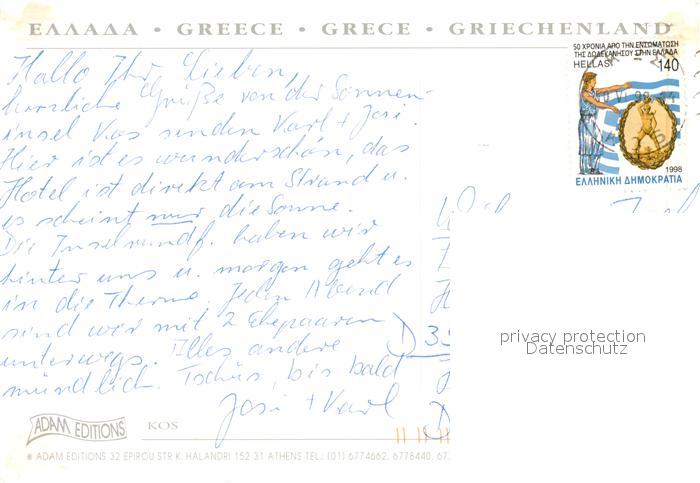 ΕΛΛΑΔΑ • GREECE • GRECE • GRIECHENLAND
50 ΧΡΟΝΙΑ ΑΠΟ ΤΗΝ ΕΝΣΩΜΑΤΩΣΗ
ΤΗΣ ΔΩΔΕΚΑΝΗΣΟΥ ΣΤΗΝ ΕΛΛΑΔΑ
HELLAS 140
1998
ΕΛΛΗΝΙΚΗ ΔΗΜΟΚΡΑΤΙΑ
Hallo Ihr Lieben,
herzliche Grüße von der Sonnen-
insel Kos senden Karl + Josi.
Hier ist es wunderschön, das
Hotel ist direkt am Strand u.
es scheint nur die Sonne.
Die Inselrundf. haben wir
hinter uns u. morgen geht es
in die Therme. Jeden Abend
sind wir mit 2 Ehepaaren
unterwegs. Alles andere
mündlich. Tschüs, bis bald
Josi + Karl
D 35
privacy protection
Datenschutz
ADAM EDITIONS KOS
ADAM EDITIONS 32 EPIROU STR K. HALANDRI 152 31 ATHENS TEL.: (01) 6774662, 6778440, 67